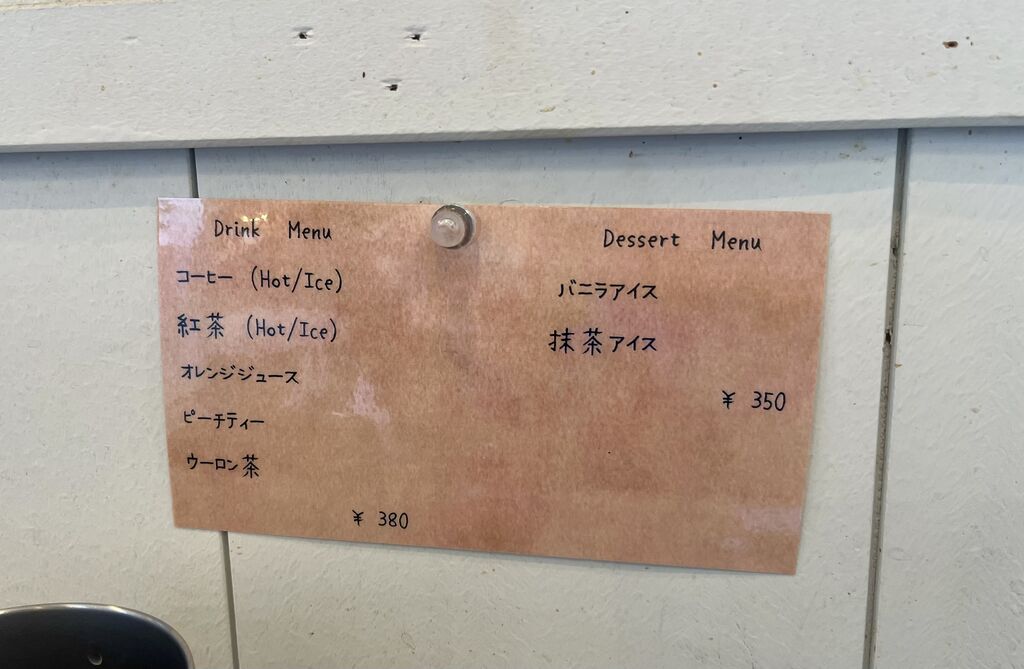 Drink Menu
コーヒー (Hot/Ice)
紅茶 (Hot/Ice)
オレンジジュース
ピーチティー
ウーロン茶
¥ 380
Dessert Menu
バニラアイス
抹茶アイス
¥ 350